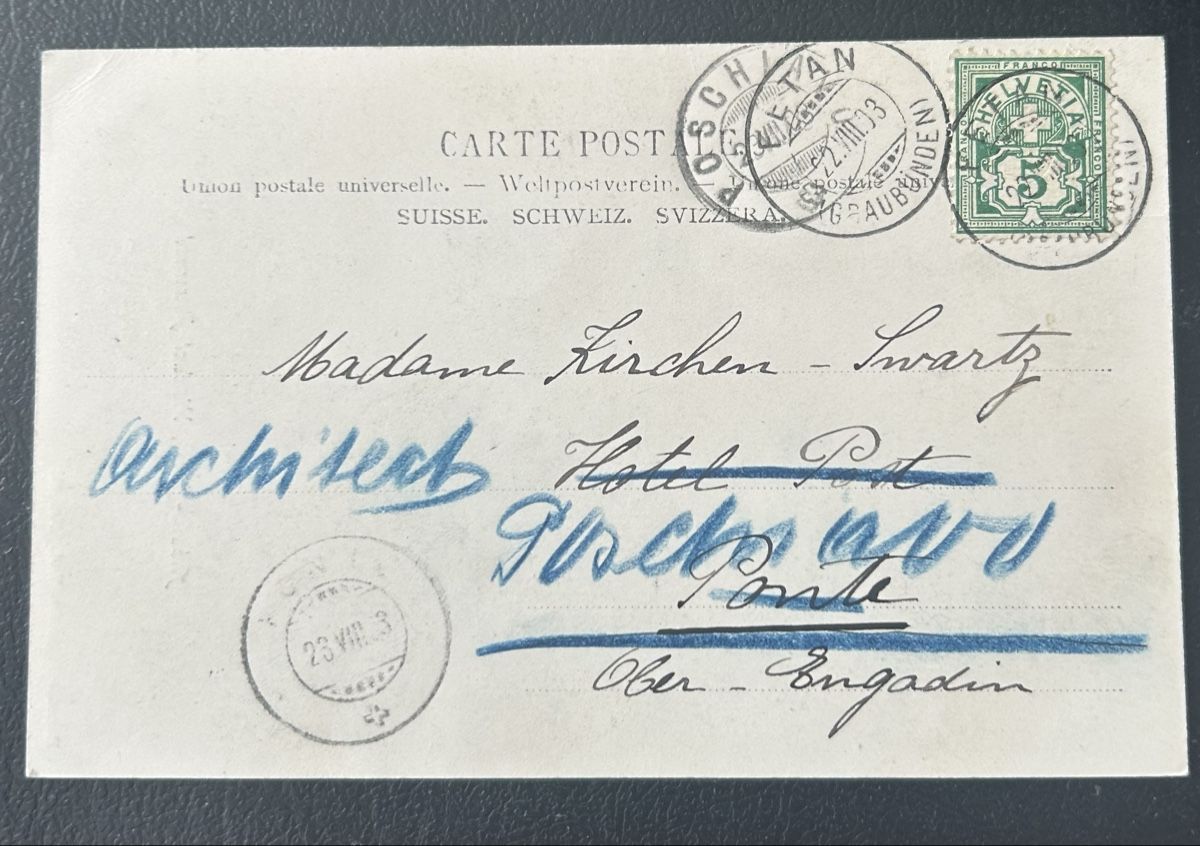 CARTE POSTALE
Union postale universelle. — Weltpostverein. — postale
SUISSE. SCHWEIZ. SVIZZERA.
POSCHI
FETAN
22.VIII.03
(GRAUBÜNDEN)
FRANCO
FRANCO
FRANCO
HELVETIA
5
Madame Kirchen - Swartz
architect
Hotel Post
Poschiavo
Ponte
Ober - Engadin
23.VIII.03